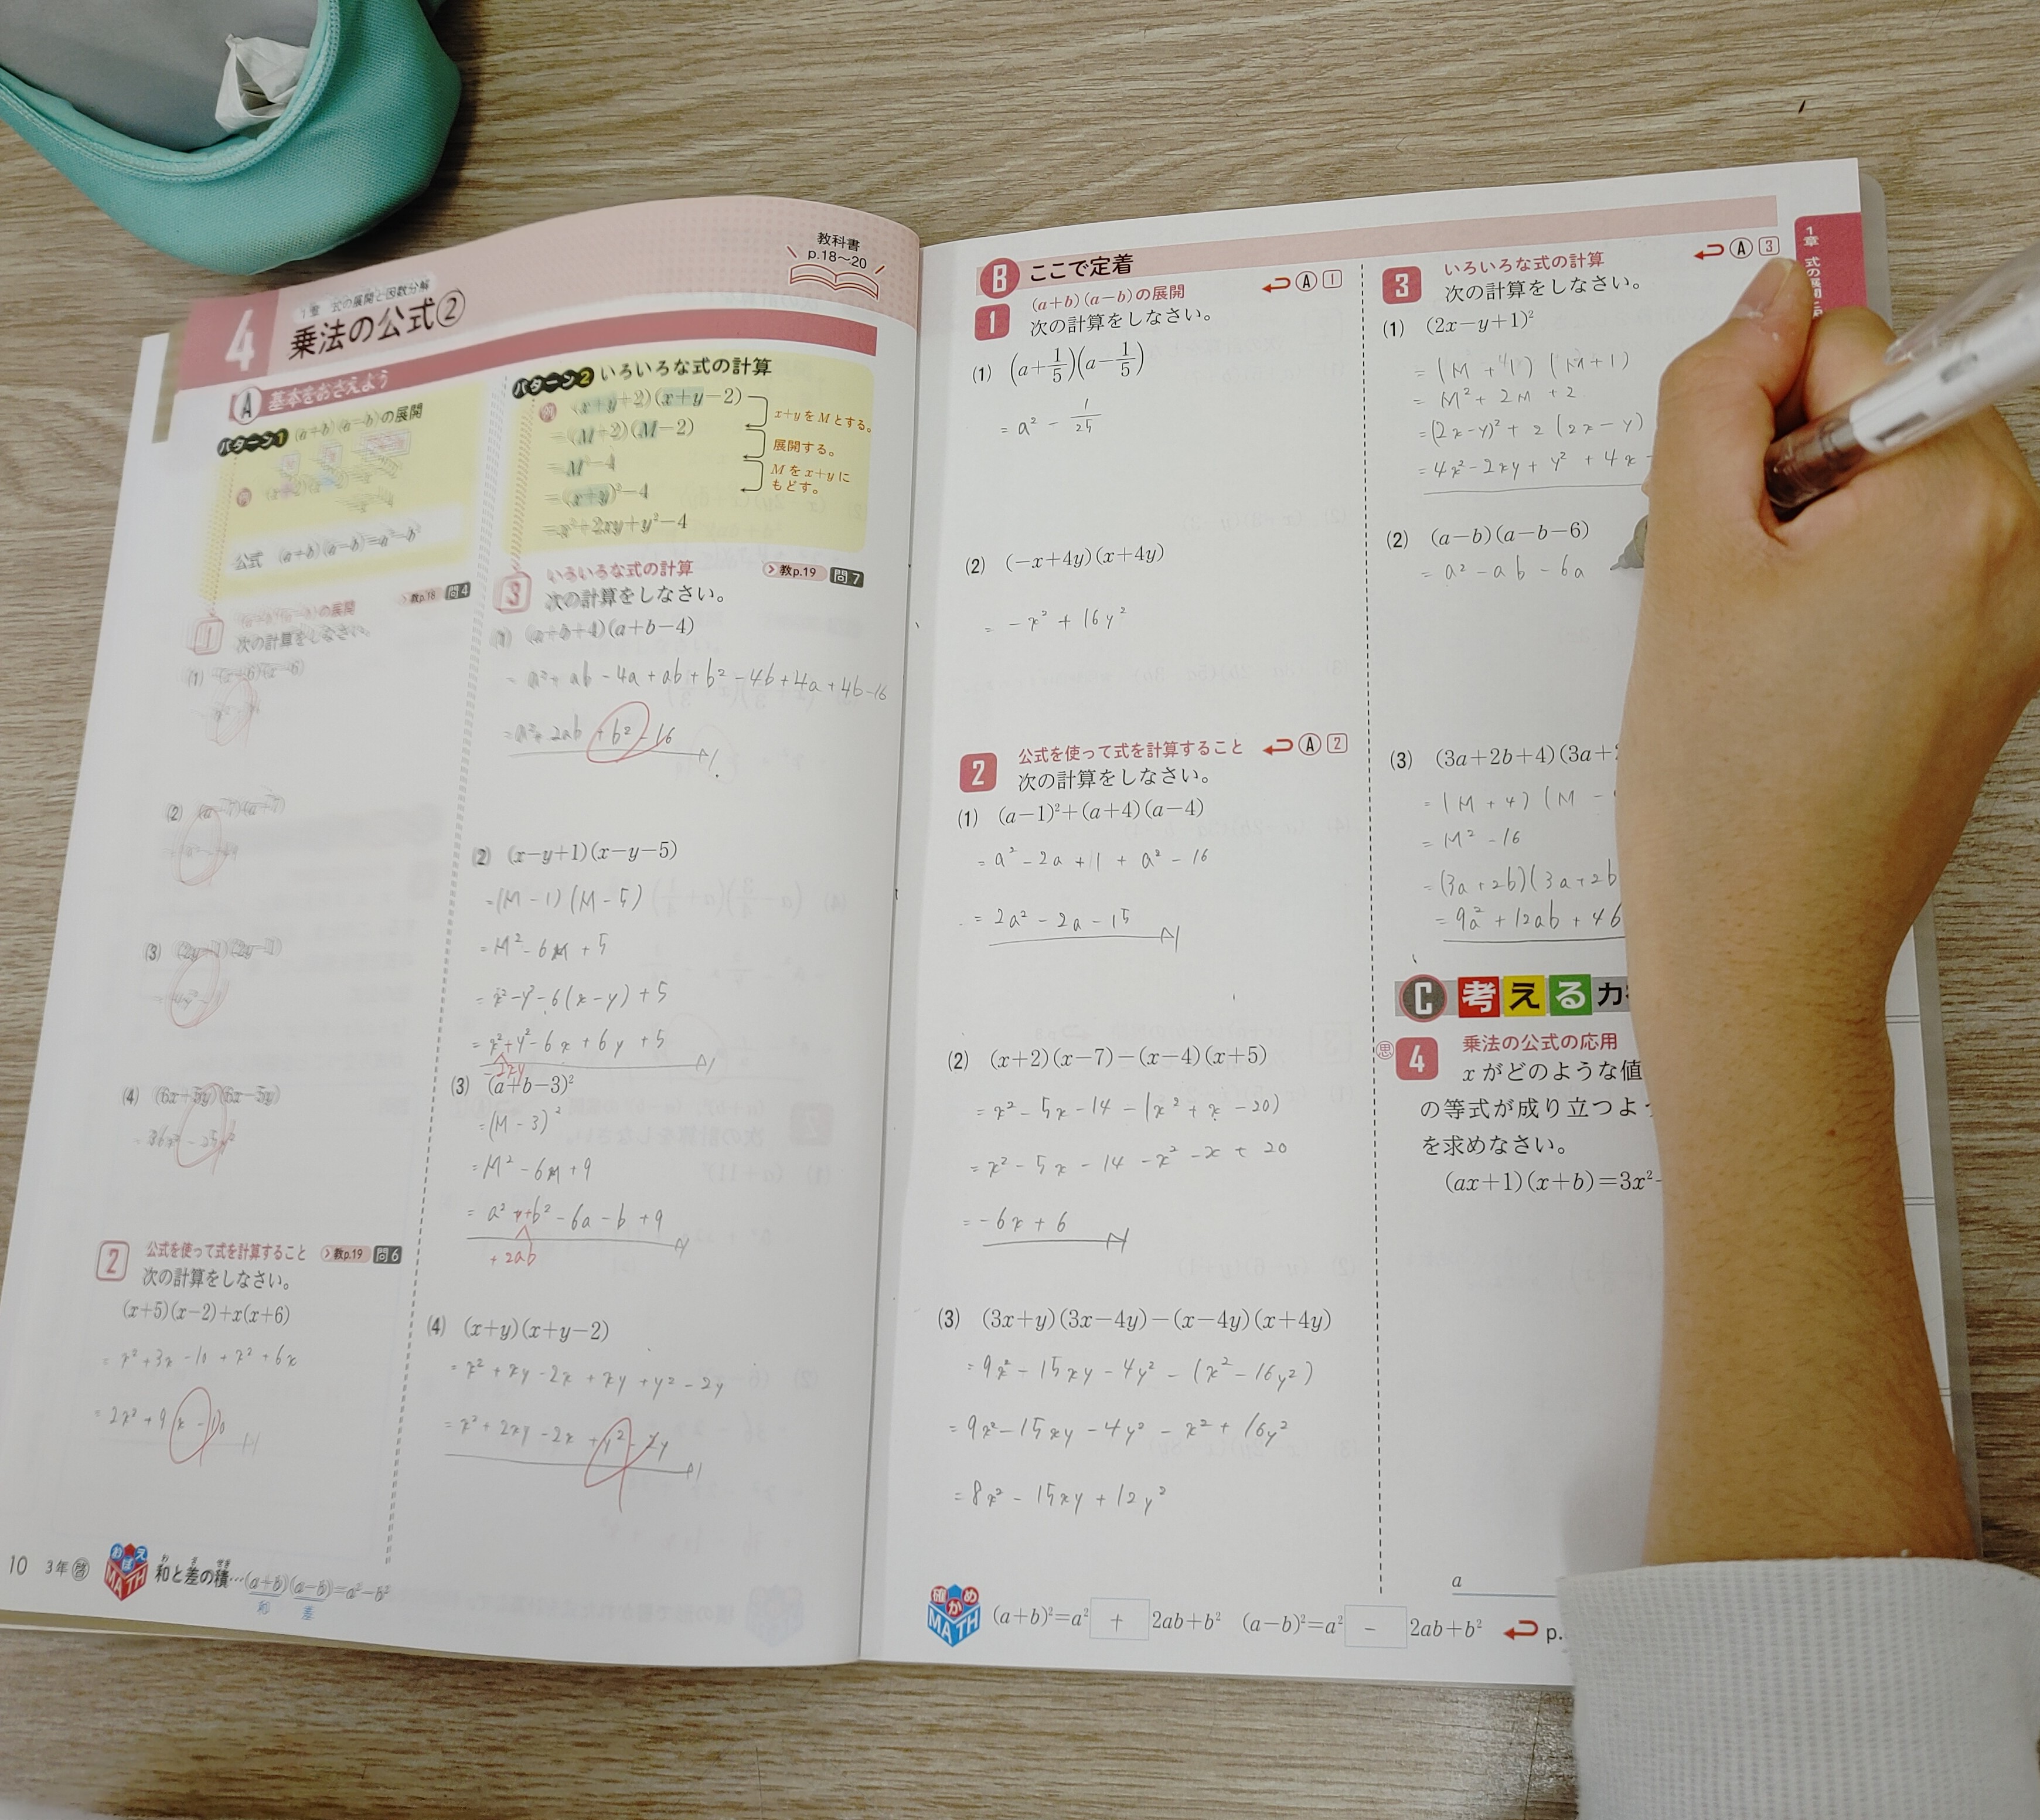 4
1章 式の展開と因数分解
乗法の公式②
教科書
p.18〜20
A 基本をおさえよう
パターン1 (a+b)(a−b)の展開
例
公式 (a+b)(a−b)=a²−b²
教p.18 問4
1 (a+b)(a−b)の展開
次の計算をしなさい。
(1) (x+6)(x−6)
(2)
(3)
(4) (6x+5y)(6x−5y)
=36x²−25y²
2 公式を使って式を計算すること 教p.19 問6
次の計算をしなさい。
(x+5)(x−2)+x(x+6)
=x²+3x−10+x²+6x
=2x²+9x−10
パターン2 いろいろな式の計算
例 (x+y+2)(x+y−2)
=(M+2)(M−2)
=M²−4
=(x+y)²−4
=x²+2xy+y²−4
x+yをMとする。
展開する。
Mをx+yに
もどす。
3 いろいろな式の計算 教p.19 問7
次の計算をしなさい。
(1) (a+b+4)(a+b−4)
=a²+ab−4a+ab+b²−4b+4a+4b−16
=a²+2ab+b²−16
(2) (x−y+1)(x−y−5)
=(M−1)(M−5)
=M²−6M+5
=x²−y²−6(x−y)+5
=x²+y²−6x+6y+5
2xy
(3) (a+b−3)²
=(M−3)²
=M²−6M+9
=a²+b²−6a−b+9
+2ab
(4) (x+y)(x+y−2)
=x²+xy−2x+xy+y²−2y
=x²+2xy−2x+y²−2y
10 3年 啓
おぼえ MATH 和と差の積…(a+b)(a−b)=a²−b²
和 差
B ここで定着
1 (a+b)(a−b)の展開 A 1
次の計算をしなさい。
(1) (a+1/5)(a−1/5)
=a²−1/25
(2) (−x+4y)(x+4y)
=−x²+16y²
2 公式を使って式を計算すること A 2
次の計算をしなさい。
(1) (a−1)²+(a+4)(a−4)
=a²−2a+1+a²−16
=2a²−2a−15
(2) (x+2)(x−7)−(x−4)(x+5)
=x²−5x−14−(x²+x−20)
=x²−5x−14−x²−x+20
=−6x+6
(3) (3x+y)(3x−4y)−(x−4y)(x+4y)
=9x²−15xy−4y²−(x²−16y²)
=9x²−15xy−4y²−x²+16y²
=8x²−15xy+12y²
3 いろいろな式の計算 A 3
次の計算をしなさい。
(1) (2x−y+1)²
=(M+1)(M+1)
=M²+2M+2
=(2x−y)²+2(2x−y)
=4x²−2xy+y²+4x−
(2) (a−b)(a−b−6)
=a²−ab−6a
(3) (3a+2b+4)(3a+2
=(M+4)(M−
=M²−16
=(3a+2b)(3a+2b
=9a²+12ab+4b
C 考える力
思 4 乗法の公式の応用
xがどのような値
の等式が成り立つよう
を求めなさい。
(ax+1)(x+b)=3x²
a
確かめ MATH (a+b)²=a² + 2ab+b² (a−b)²=a² − 2ab+b² p.
1章 式の展開と